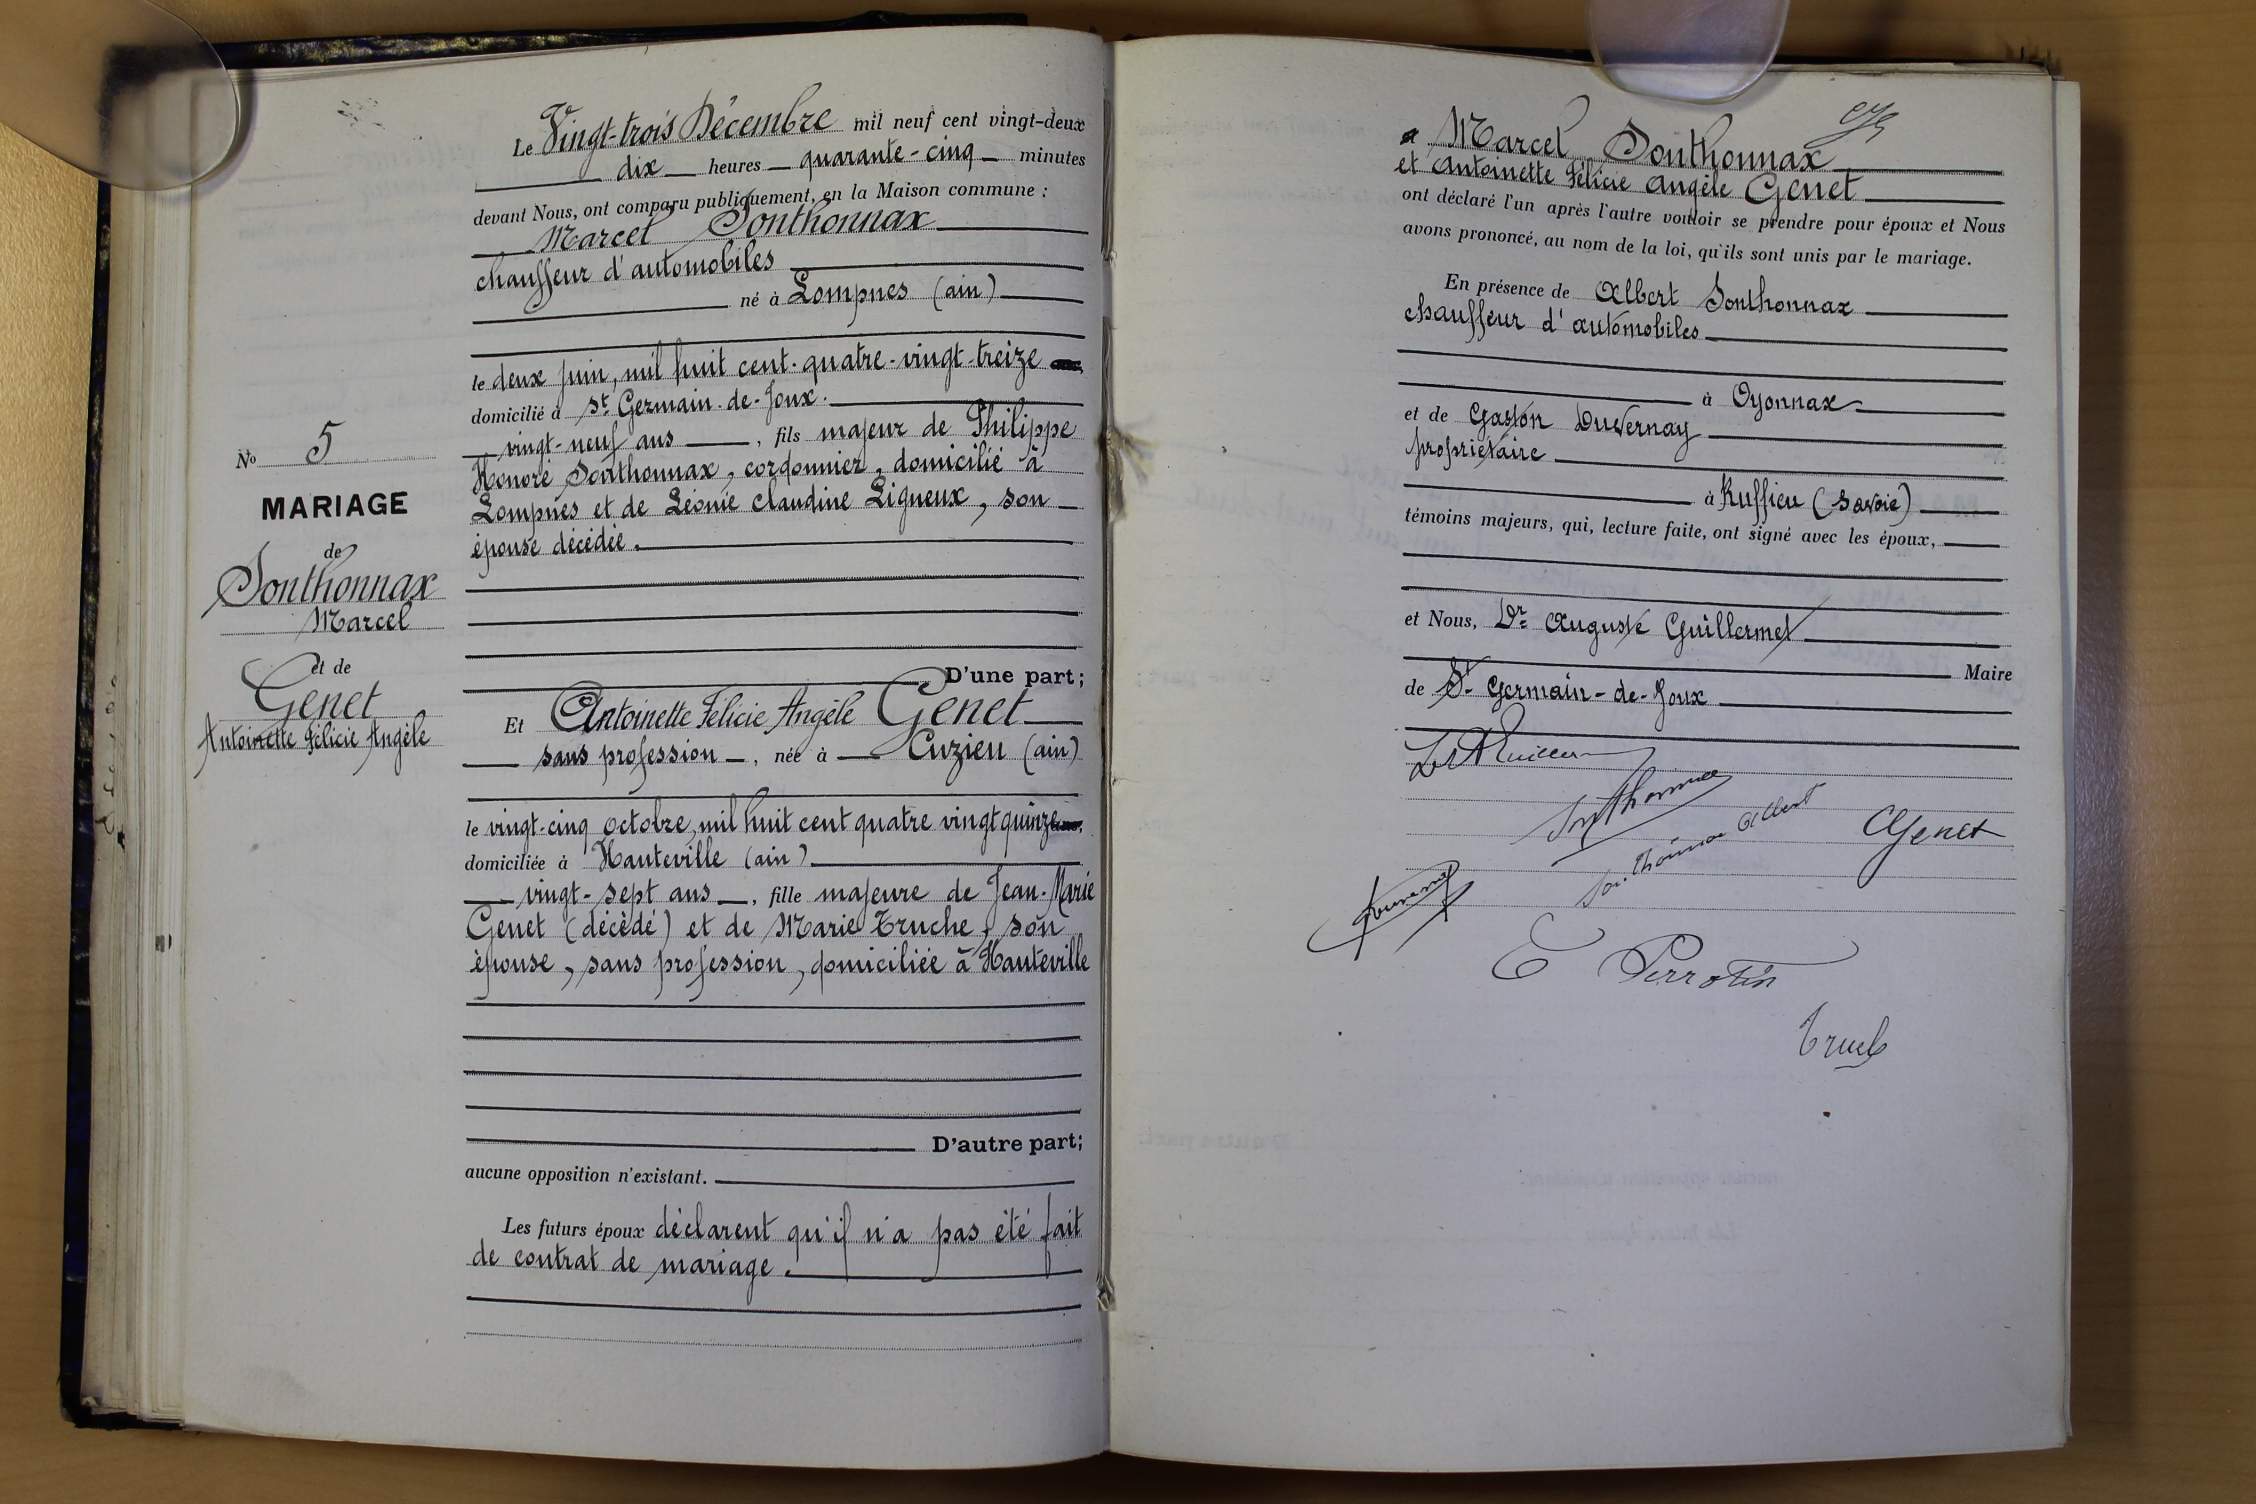 Le Vingt-trois Décembre mil neuf cent vingt-deux
dix heures quarante-cinq minutes
devant Nous, ont comparu publiquement, en la Maison commune :
Marcel Sonthonnax
chauffeur d'automobiles
né à Lompnes (ain)
le deux juin, mil huit cent-quatre-vingt-treize
domicilié à St Germain-de-Joux.
vingt-neuf ans, fils majeur de Philippe
Honoré Sonthonnax, cordonnier, domicilié à
Lompnes et de Léonie Claudine Ligneux, son
épouse décédée.
No 5
MARIAGE
de
Sonthonnax
Marcel
et de
Genet
Antoinette Félicie Angèle
D'une part;
Et Antoinette Félicie Angèle Genet
sans profession, née à Cuzieu (ain)
le vingt-cinq octobre, mil huit cent quatre vingt quinze
domiciliée à Hauteville (ain)
vingt-sept ans, fille majeure de Jean-Marie
Genet (décédé) et de Marie Truche, son
épouse, sans profession, domiciliée à Hauteville
D'autre part;
aucune opposition n'existant.
Les futurs époux déclarent qu'il n'a pas été fait
de contrat de mariage.
Marcel Sonthonnax
et Antoinette Félicie Angèle Genet
ont déclaré l'un après l'autre vouloir se prendre pour époux et Nous
avons prononcé, au nom de la loi, qu'ils sont unis par le mariage.
En présence de Albert Sonthonnax
chauffeur d'automobiles
à Oyonnax
et de Gaston Duvernay
propriétaire
à Ruffieu (Savoie)
témoins majeurs, qui, lecture faite, ont signé avec les époux,
et Nous, Dr Auguste Guillermet
Maire
de St Germain-de-Joux
Sonthonnax
Sonthonnax Albert
AGenet
E Perrotin